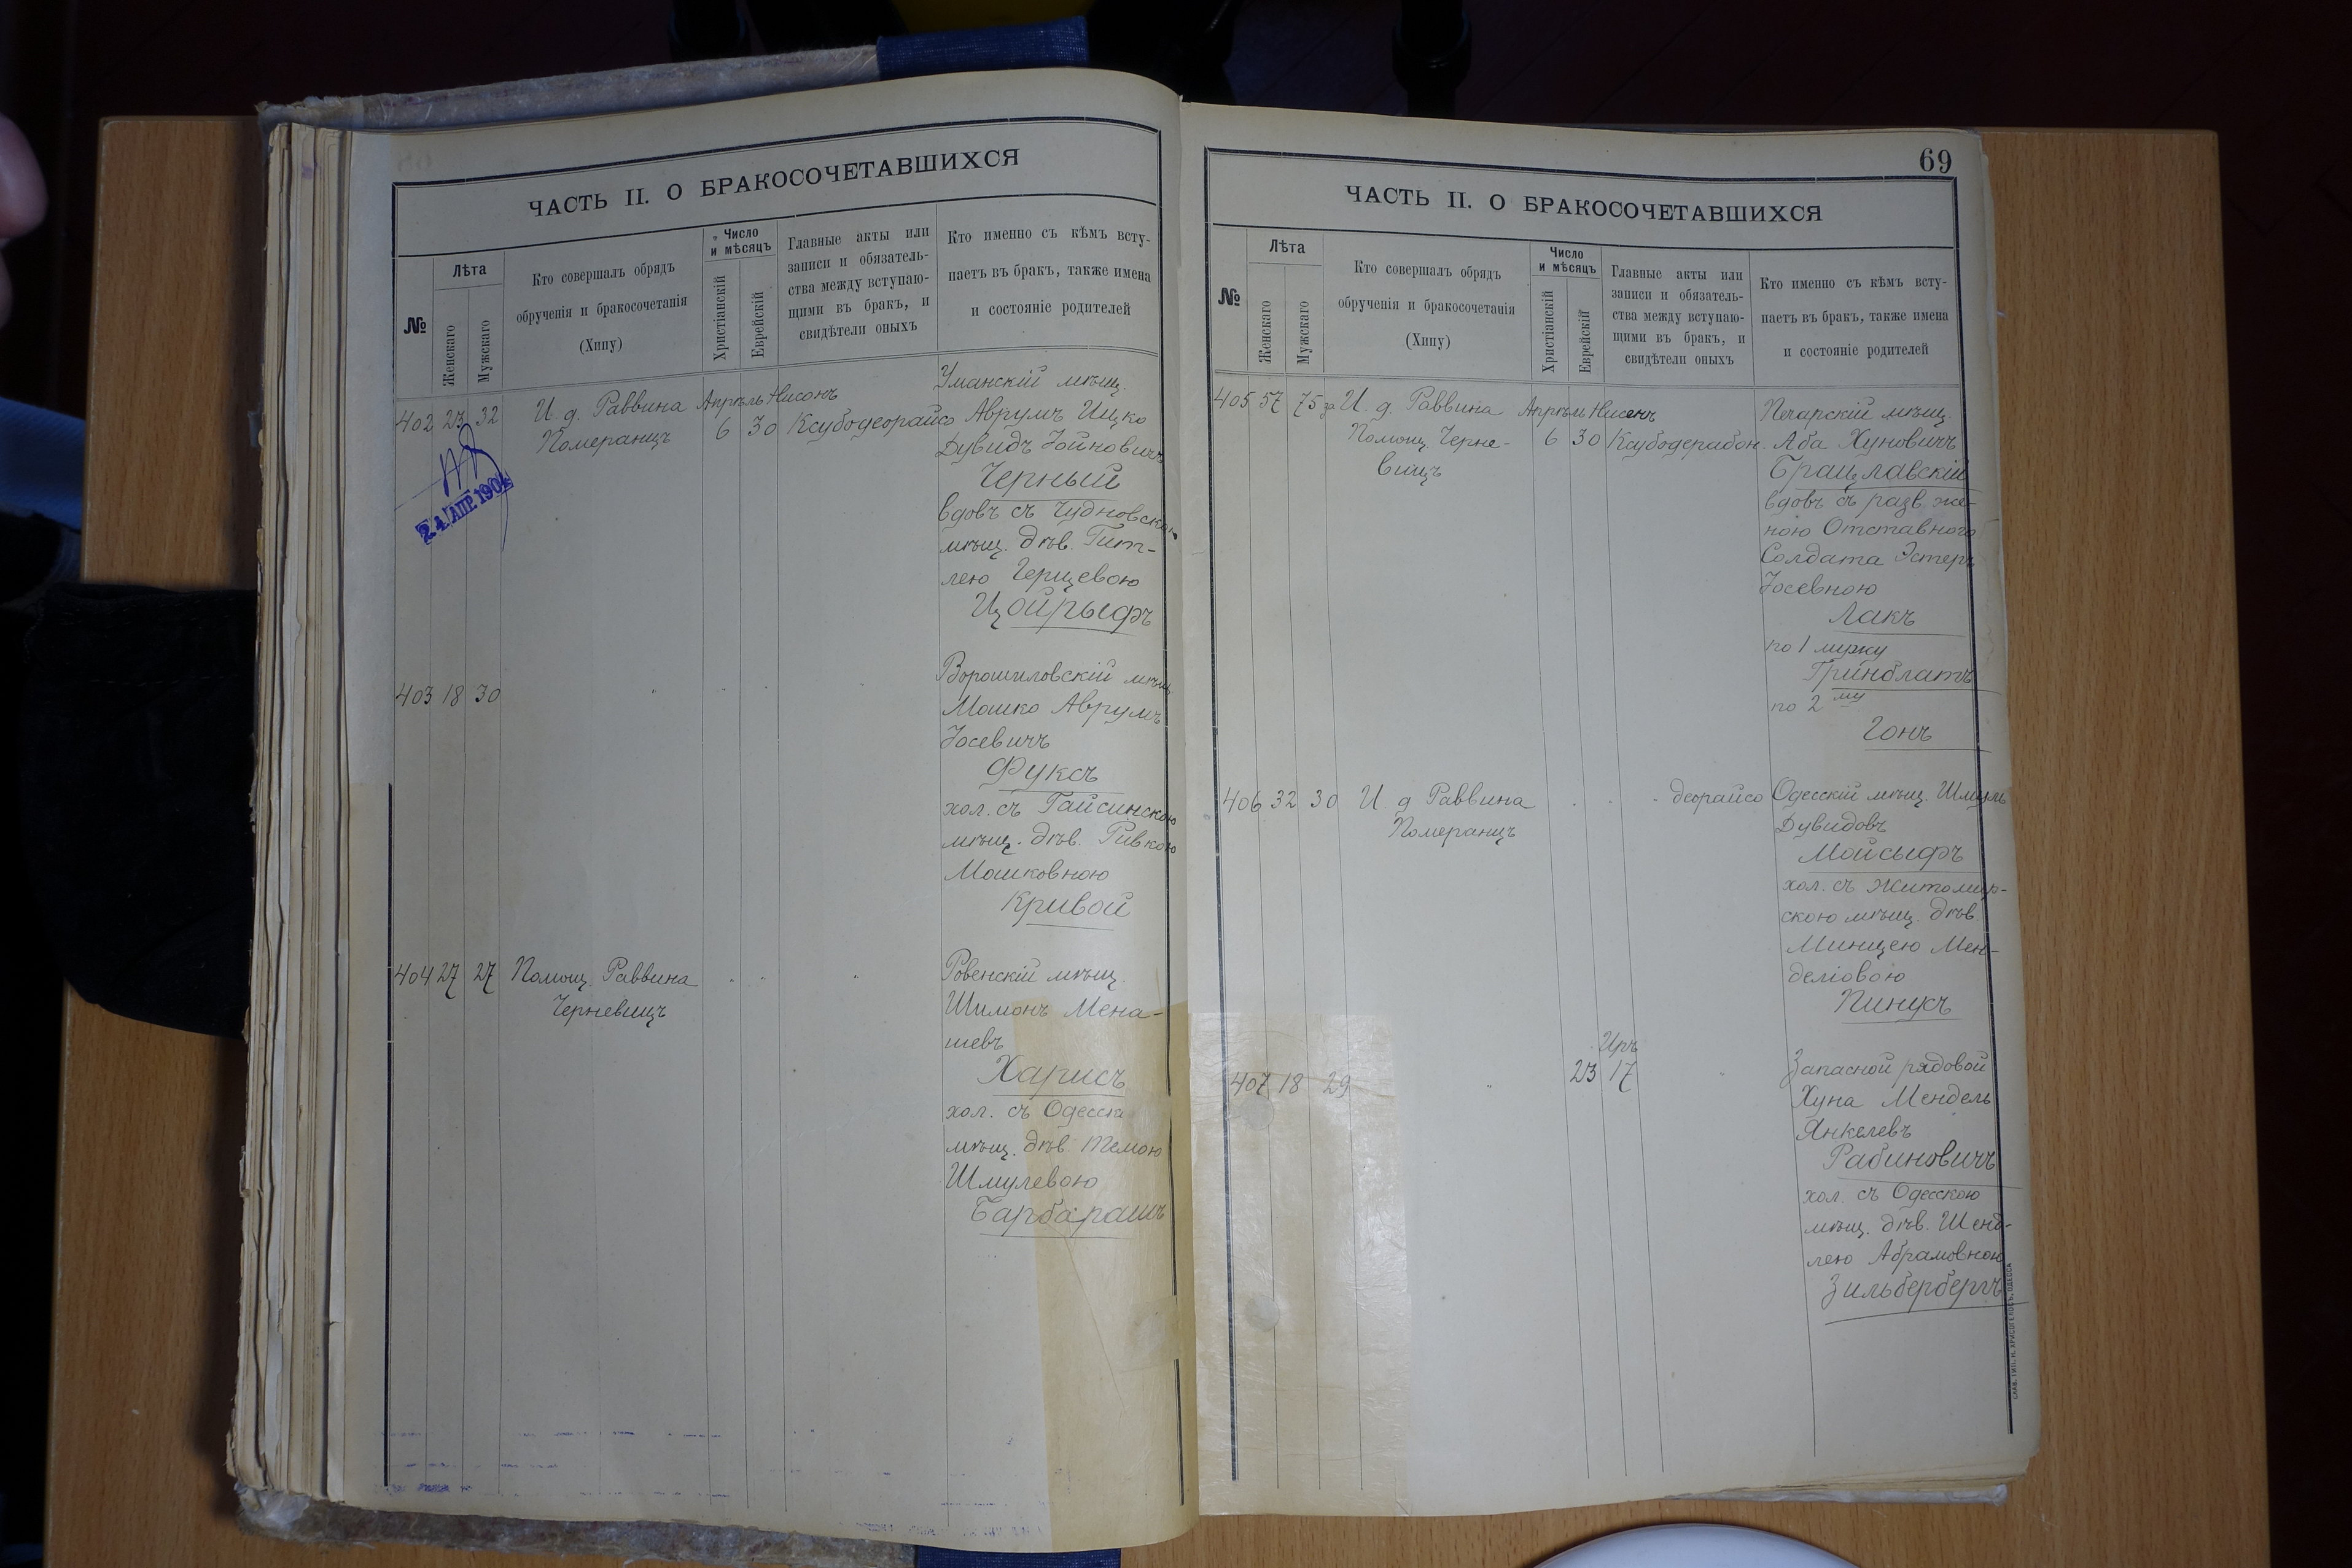 ЧАСТЬ II. О БРАКОСОЧЕТАВШИХСЯ
№
Лѣта
Женскаго
Мужскаго
Кто совершалъ обрядъ
обрученія и бракосочетанія
(Хипу)
Число
и мѣсяцъ
Христіанскій
Еврейскій
Главные акты или
записи и обязатель-
ства между вступаю-
щими въ бракъ, и
свидѣтели оныхъ
Кто именно съ кѣмъ всту-
паетъ въ бракъ, также имена
и состояніе родителей
402 23 32 И. д. Раввина
Померанцъ
Апрѣль Нисонъ
6 30 Ксубодеорайсо
24 АПР 1904
Уманскій мѣщ.
Аврумъ Ицко
Дувидъ Іойновичъ
Черный
вдовъ съ Чудновскою
мѣщ. дѣв. Гит-
лею Герцевою
Цойрыфъ
403 18 30 " " "
Ворошиловскій мѣщ
Мошко Аврумъ
Іосевичъ
Фуксъ
хол. съ Гайсинскою
мѣщ. дѣв. Ривкою
Мошковною
Кривой
404 27 27 Помощ. Раввина
Черневицъ
" " "
Ровенскій мѣщ.
Шимонъ Мена-
шевъ
Харисъ
хол. съ Одесск
мѣщ. дѣв. Темою
Шмулевою
Барбарашъ
69
ЧАСТЬ II. О БРАКОСОЧЕТАВШИХСЯ
№
Лѣта
Женскаго
Мужскаго
Кто совершалъ обрядъ
обрученія и бракосочетанія
(Хипу)
Число
и мѣсяцъ
Христіанскій
Еврейскій
Главные акты или
записи и обязатель-
ства между вступаю-
щими въ бракъ, и
свидѣтели оныхъ
Кто именно съ кѣмъ всту-
паетъ въ бракъ, также имена
и состояніе родителей
405 57 75 за И. д. Раввина
Помощ. Черне-
вицъ
Апрѣль Нисенъ
6 30 Ксубодерабон.
Печарскій мѣщ.
Аба Хуновичъ
Брацлавскій
вдовъ съ разв. же-
ною Отставного
Солдата Эстеръ
Іосевною
Лакъ
по 1 мужу
Гринблатъ
по 2 му
Гонъ
406 32 30 И д Раввина
Померанцъ
" " " деорайсо
Одесскій мѣщ. Шмуль
Дувидовъ
Мойсыфъ
хол. съ Житомир-
скою мѣщ. дѣв.
Минцею Мен-
деліовою
Пинукъ
407 18 29 "
Иръ
23 17 "
Запасной рядовой
Хуна Мендель
Янкелевъ
Рабиновичъ
хол. съ Одесскою
мѣщ. дѣв. Шенд-
лею Абрамовною
Зильбербергъ